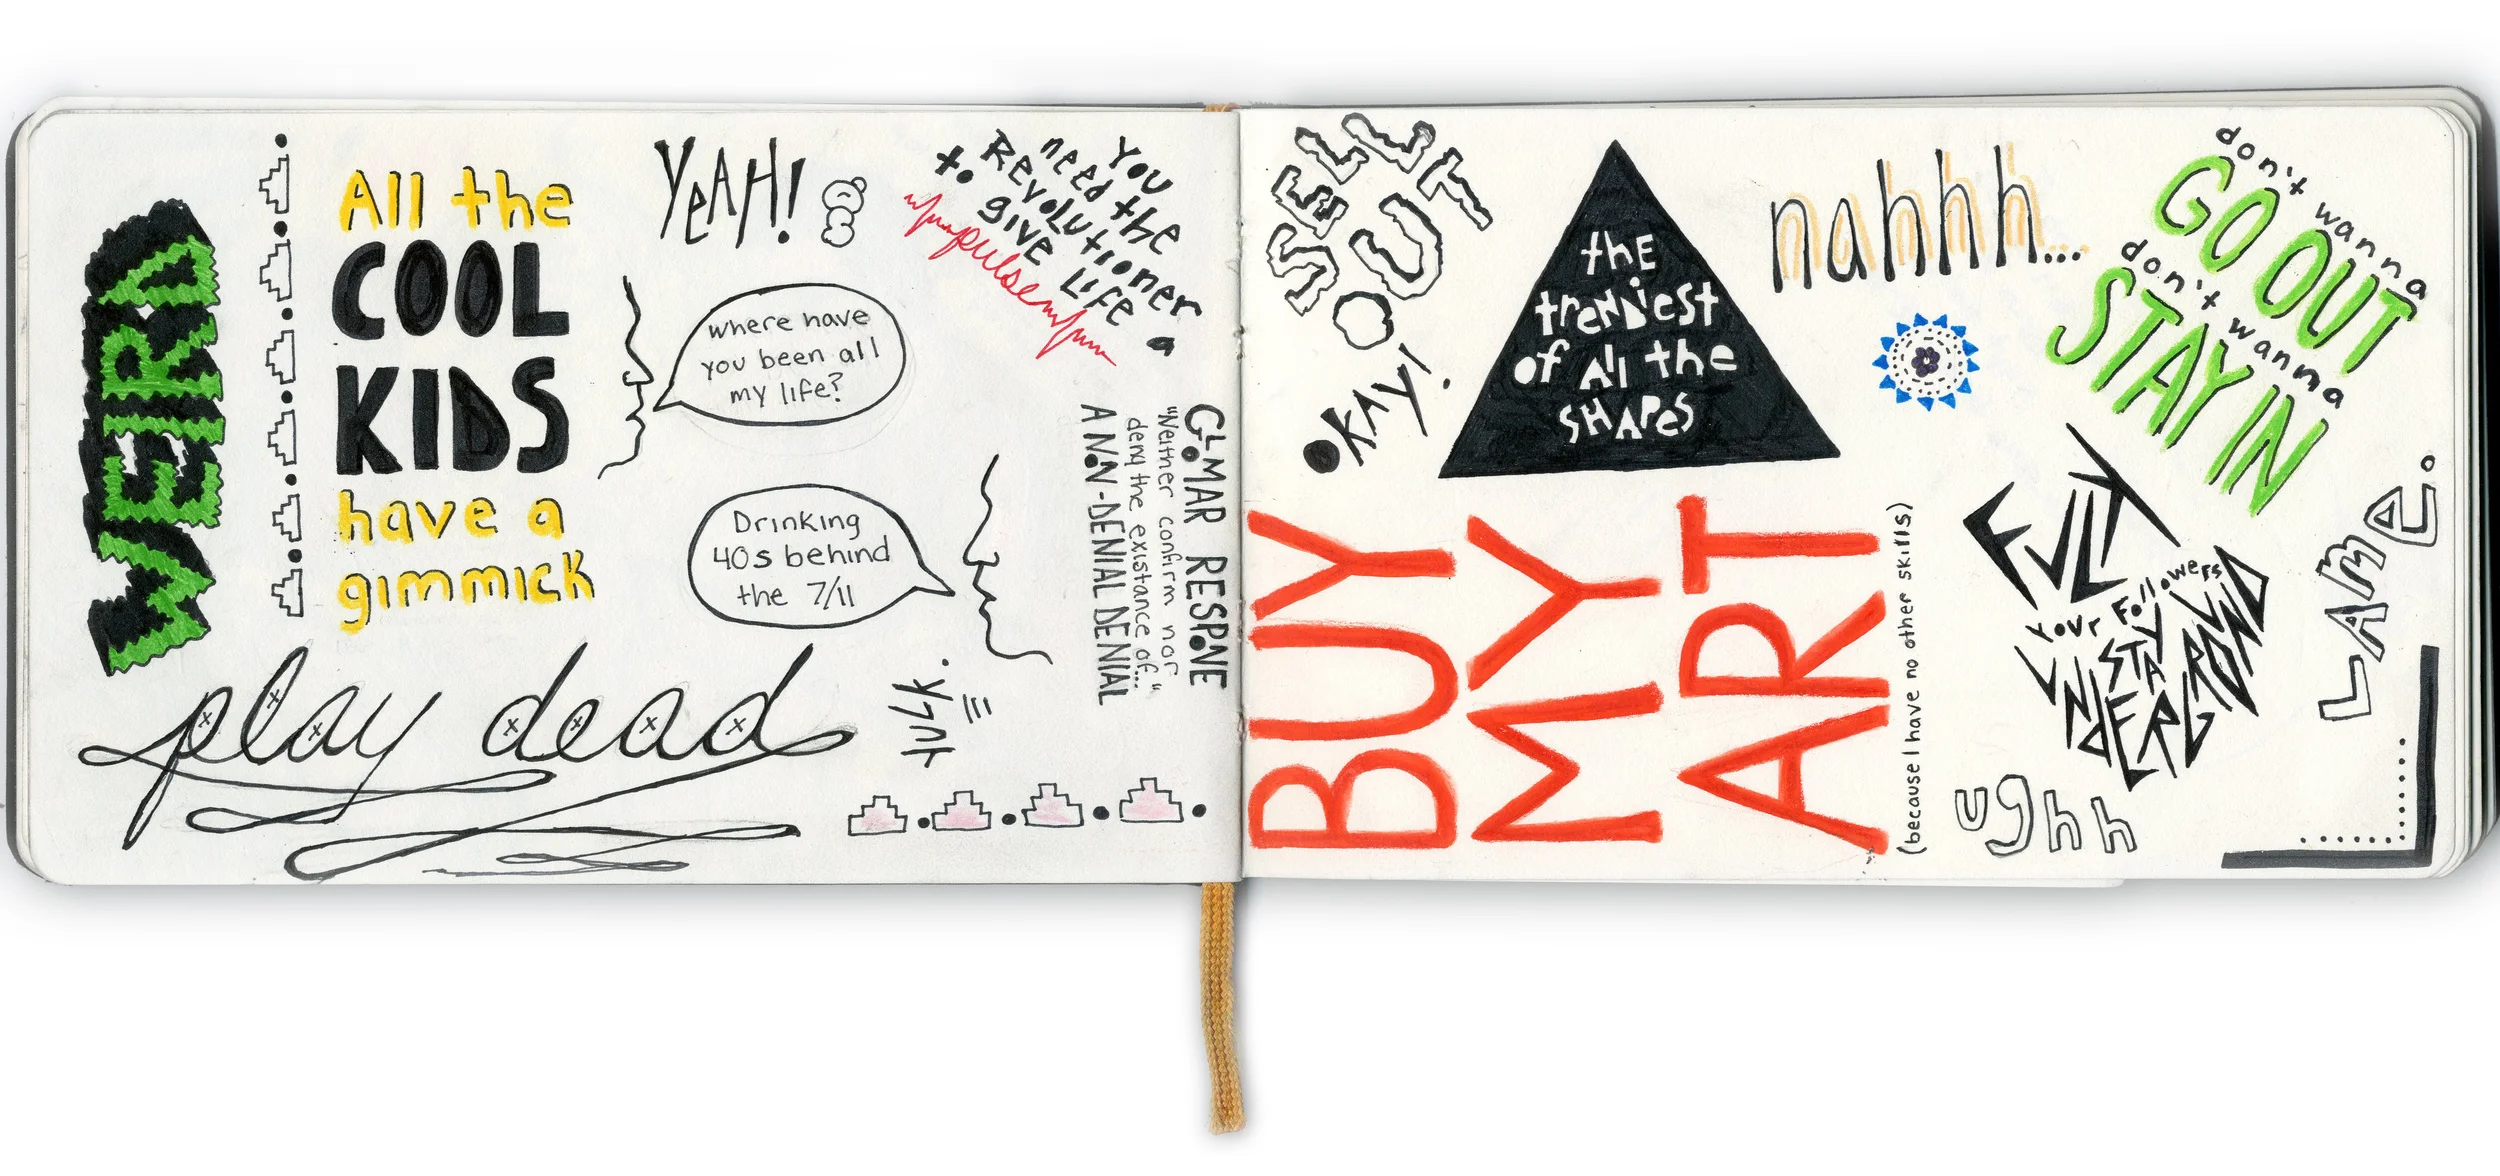 WEIRD
All the
COOL
KIDS
have a
gimmick
YEAH!
where have
you been all
my life?
Drinking
40s behind
the 7/11
play dead
You
need the
Revolutioner
to give life a
pulse
GLOMAR RESPONE
"Neither confirm nor
deny the existance of..."
A NON-DENIAL DENIAL
SELL
OUT
OKAY!
the
trendiest
of All the
SHAPES
BUY
MY
ART
(because I have no other skills)
nahhh...
don't wanna
GO OUT
don't wanna
STAY IN
FVCK
your followers
STAY
UNDERGROUND
LAME.
ughh